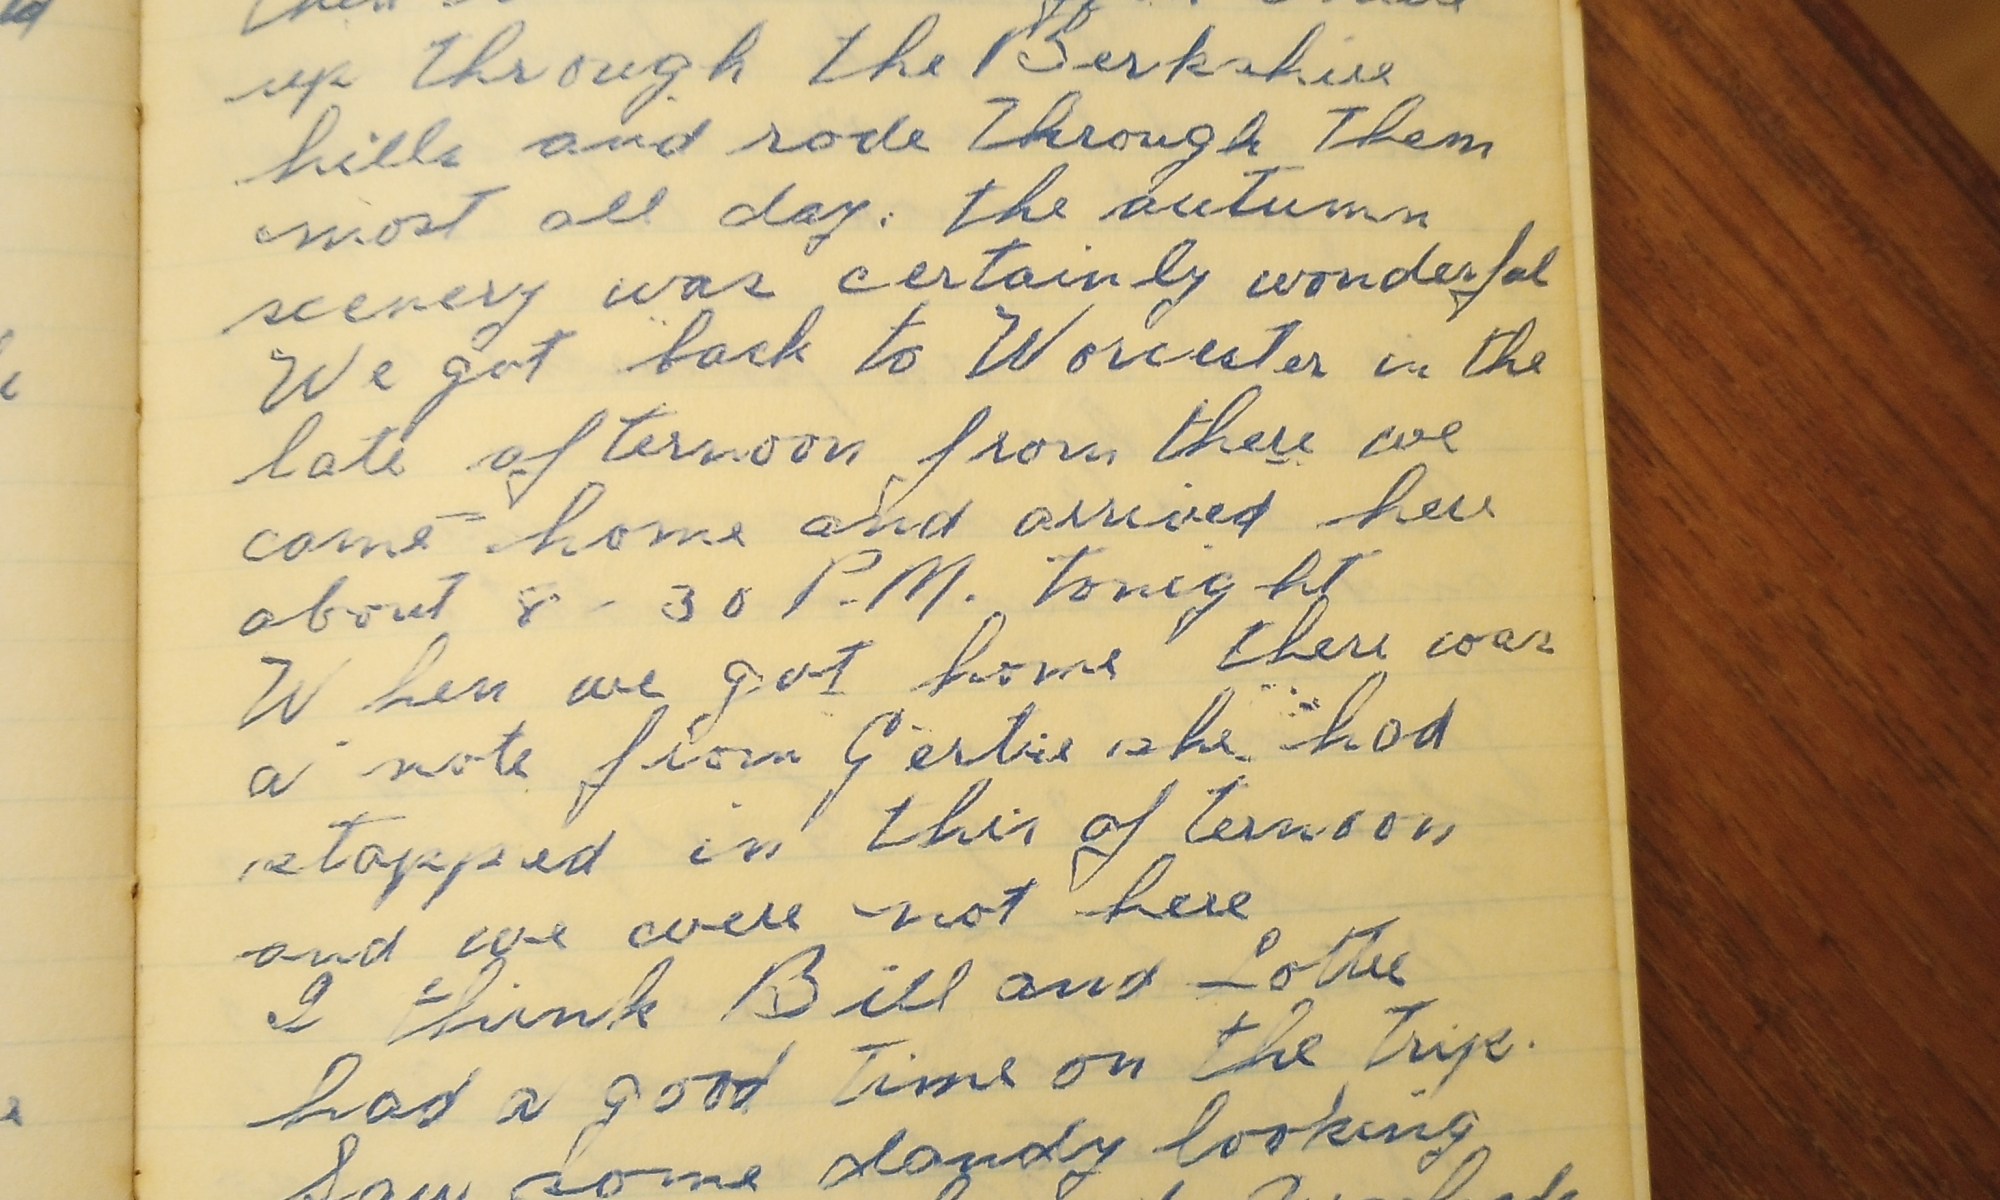 up through the Berkshire
hills and rode through them
most all day. the autumn
scenery was certainly wonderful
We got back to Worcester in the
late afternoon from there we
came home and arrived here
about 8-30 P.M. tonight
When we got home there was
a note from Gertie she had
stopped in this afternoon
and we were not here
I think Bill and Lottie
had a good time on the trip.
Saw some dandy looking